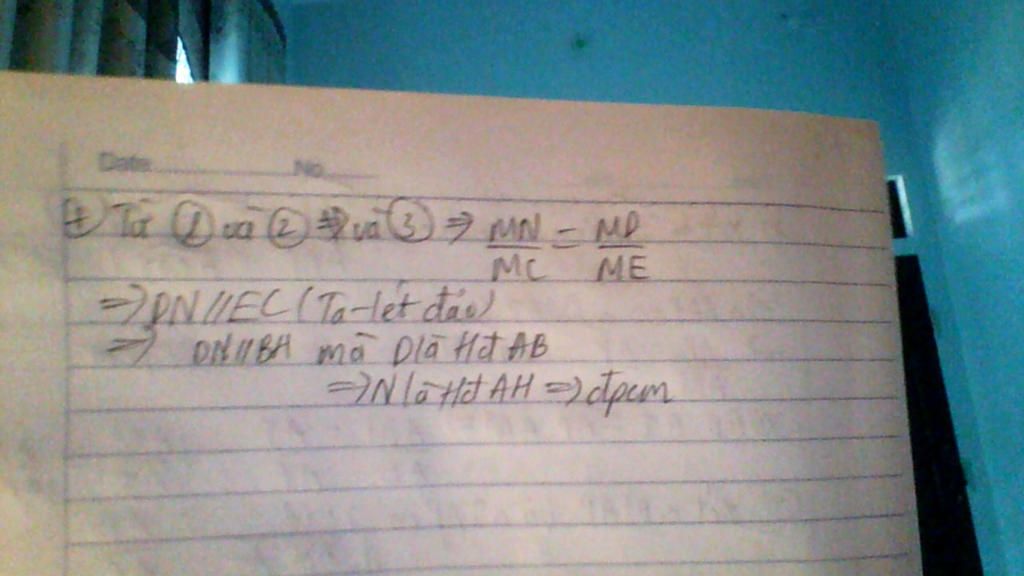 Date No
+ Từ ① và ② và ③ ⇒ MN/MC = MD/ME
⇒ DN // EC (Ta-lét đảo)
⇒ DN // BH mà D là tđ AB
⇒ N là tđ AH ⇒ đpcm